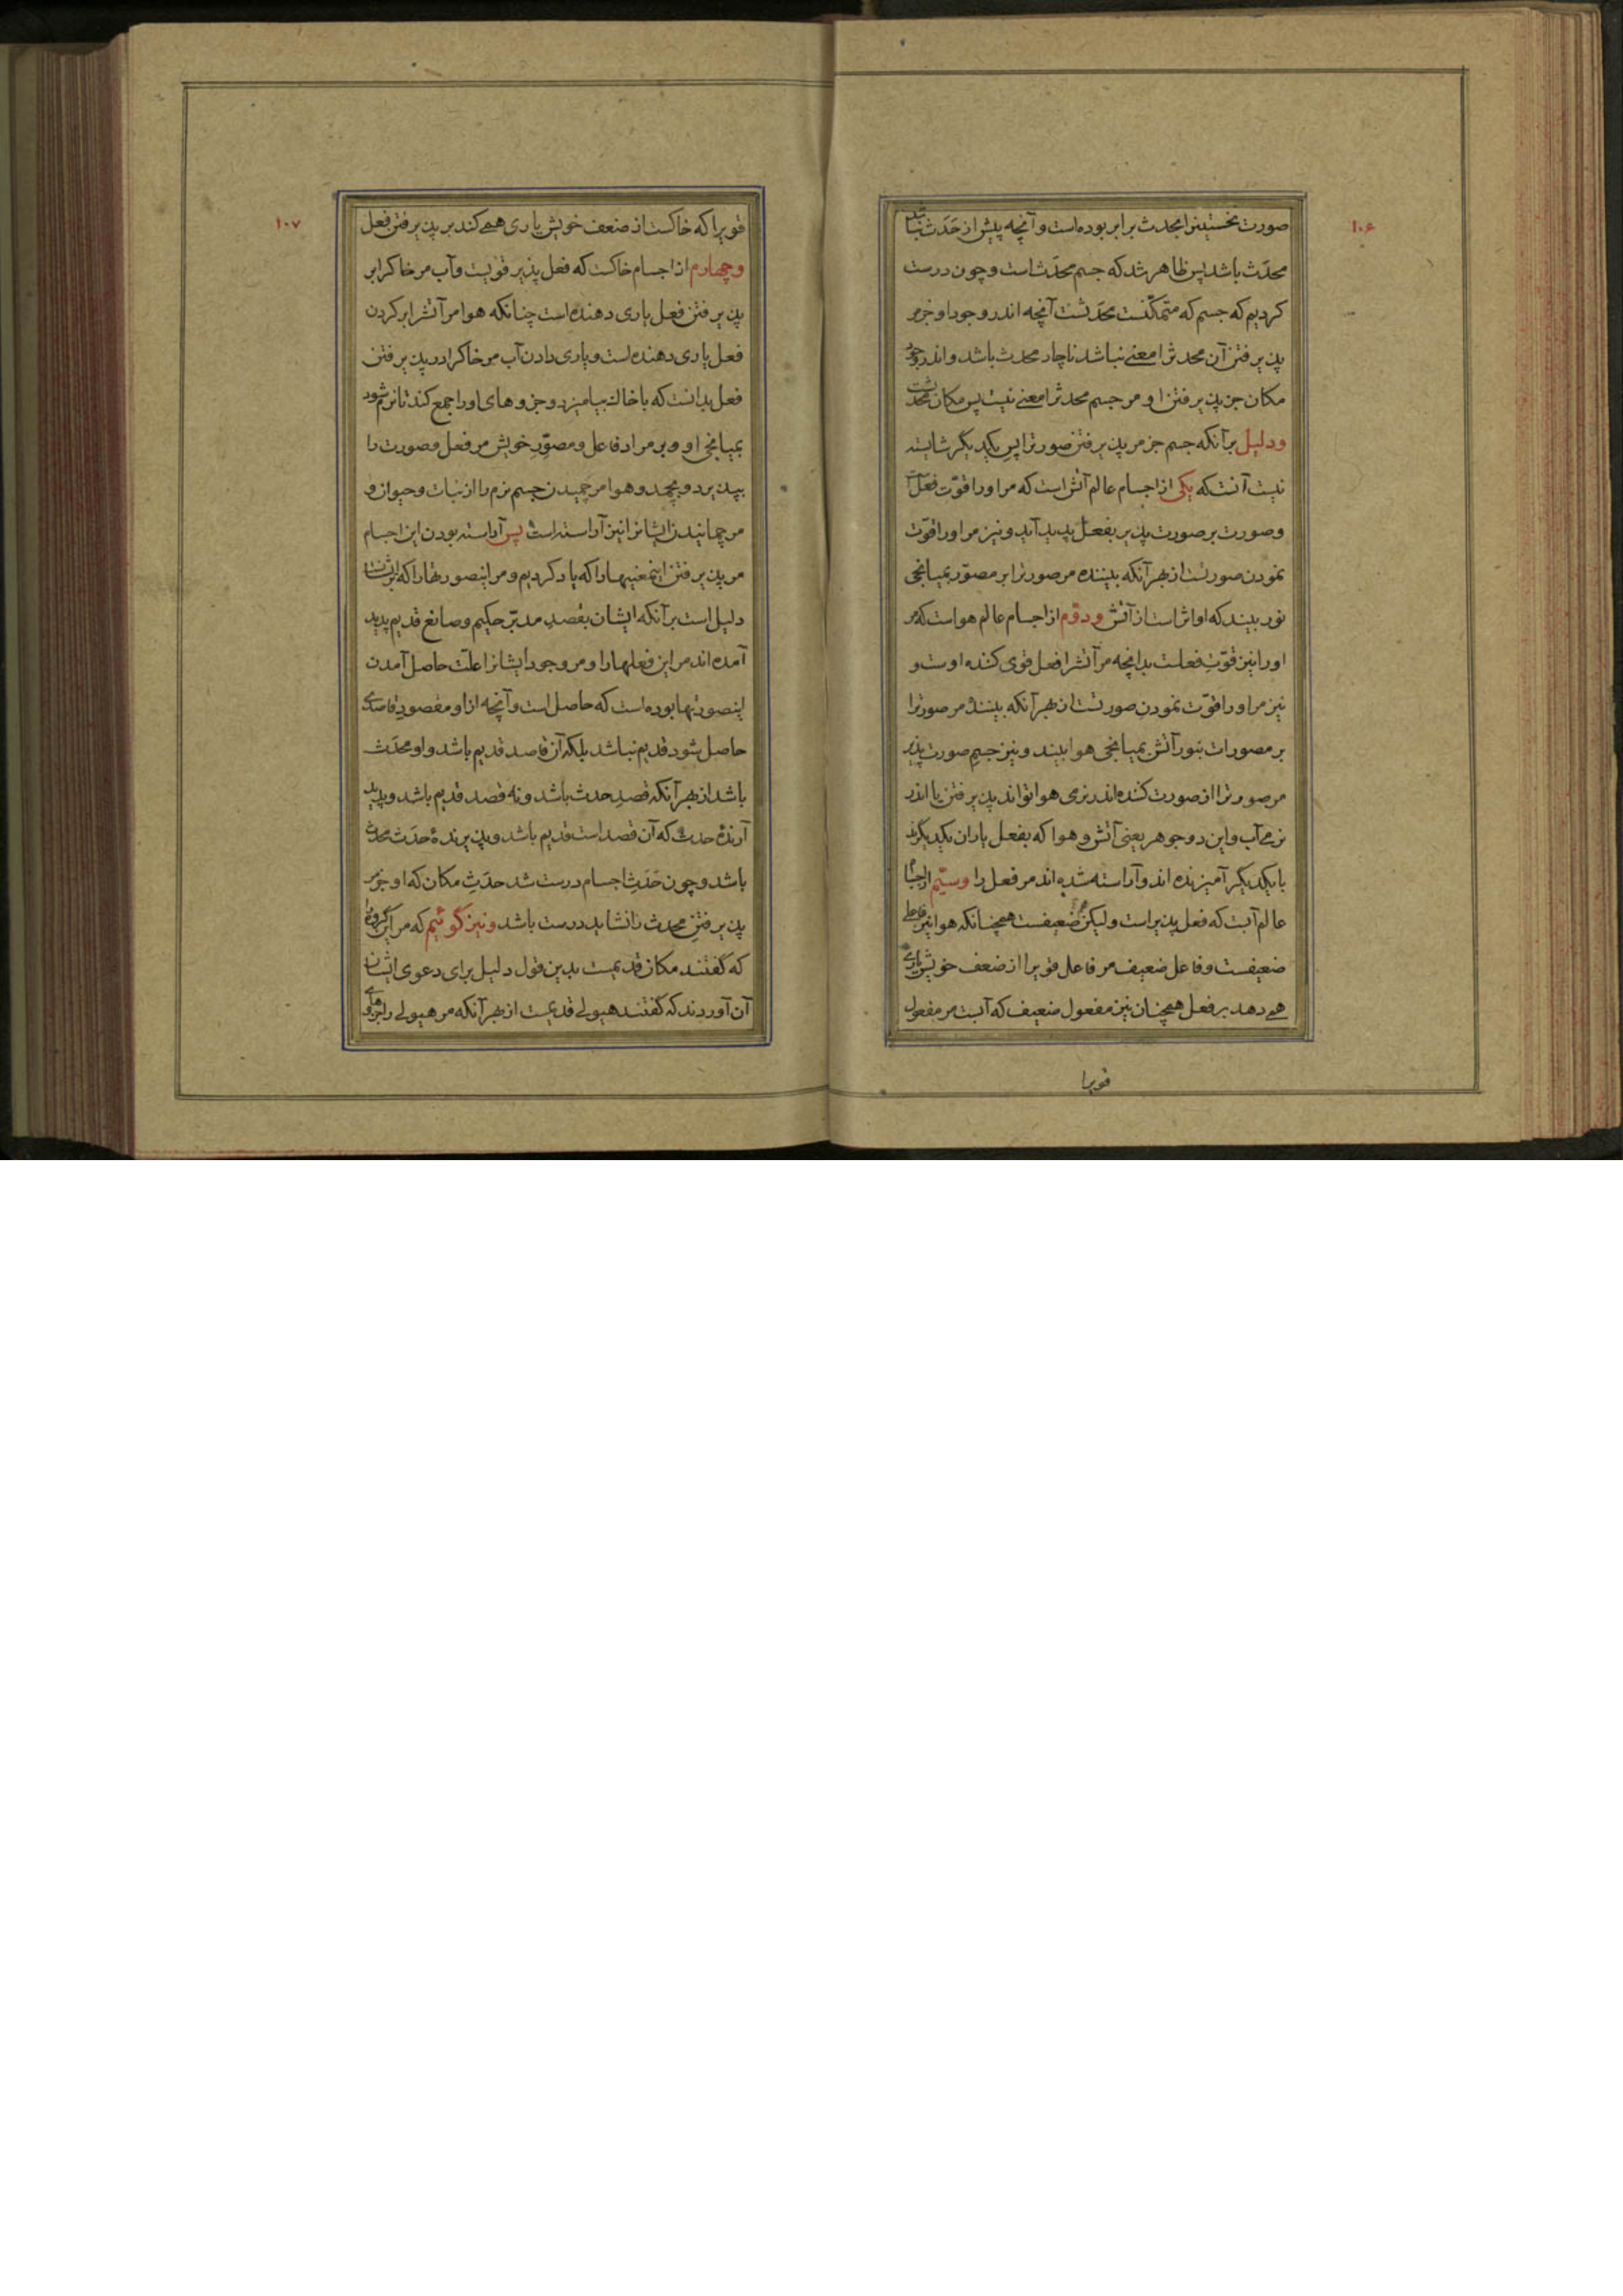 ۱۰۶
صورت نخستینرا بحدث برابر بوده است و آنچه پیش از حَدَث نباشد
محدَث باشد پس ظاهر شد که جسم محدَث است و چون درست
کردیم که جسم که متمکّنست محدَثست آنچه اندر وجود او جز مر
پذیرفتن آن محدثرا معنی نباشد ناچار محدث باشد و اندر وجود
مکان جز پذیرفتن او مر جسم محدثرا معنی نیست پس مکان محدثست
ودلیل برآنکه جسم جز مر پذیرفتن صورترا پس یکدیگر شایسته
نیست آنست که یکی از اجسام عالم آتش است که مر اورا قوّت فعل است
و صورت بر صورت پذیر بفعل پدید آید و نیز مر اورا قوّت
نمودن صورتست از بهر آنکه بیننده مر صورترا بر مصوّر بمیانجی
نور بیند که او اثر است از آتش ودوّم از اجسام عالم هواست که مر
اورا نیز قوّتِ فعلست بدانچه مر آتشرا فعل قوی کننده اوست و
نیز مر اورا قوّت نمودن صورتست از بهر آنکه بیننده مر صورترا
بر مصورات بنور آتش بمیانجی هوا بیند و نیز جسمِ صورت پذیر
مر صورترا از صورت کننده اندر نرمی هوا تواند پذیرفتن یا اندر
نرمی آب و این دو جوهر یعنی آتش و هوا که بفعل یاران یکدیگرند
با یکدیگر آمیزنده اند و آراسته شده اند مر فعل را وسیّم از اجسام
عالم آبست که فعل پذیر است ولیکن ضعیفست همچنانکه هوا نیز فاعلی
ضعیفست و فاعل ضعیف مر فاعل قویرا از ضعف خویش یاری
همی دهد بر فعل همچنان نیز مفعول ضعیف که آبست مر مفعول
قویرا
۱۰۷
قویرا که خاکست از ضعف خویش یاری همی کند بر پذیرفتن فعل
وچهارم از اجسام خاکست که فعل پذیر قویست و آب مر خاکرا بر
پذیرفتن فعل یاری دهنده است چنانکه هوا مر آتشرا بر کردن
فعل یاری دهنده است و یاری دادن آب مر خاکرا در پذیرفتن
فعل بدانست که با خاک بیامیزد و جزوهای اورا جمع کند تا نرم شود
بمیانجی او و بر مراد فاعل و مصوّرِ خویش مر فعل و صورت را
بپذیرد و بچمد و هوا مر چمیدن جسم نرم را از نبات و حیوان و
مر چمانیدن ایشانرا نیز آراسته است پس آراسته بودن این اجسام
مر پذیرفتن اینمعنیهارا که یاد کردیم و مر اینصورتهارا که بر ایشانست
دلیل است برآنکه ایشان بقصدِ مدبّر حکیم و صانع قدیم پدید
آمده اند مر این فعلهارا و مر وجود ایشانرا علّت حاصل آمدن
اینصورتها بوده است که حاصل است و آنچه از او مقصودِ قاصدی
حاصل شود قدیم نباشد بلکه آن قاصد قدیم باشد و او محدَث
باشد از بهر آنکه قصدِ حدث باشد و نه قصد قدیم باشد و پدید
آرندهٔ حدث که آن قصد است قدیم باشد و پذیرندهٔ حدَث محدث
باشد و چون حَدَثِ اجسام درست شد حدَثِ مکان که او جز مر
پذیرفتنِ محدث را نشاید درست باشد ونیز گوئیم که مر این گروه را
که گفتند مکان قدیمست بدین قول دلیل برای دعوی ایشان
آن آوردند که گفتند هیولی قدیمست از بهر آنکه مر هیولی را جزوهای